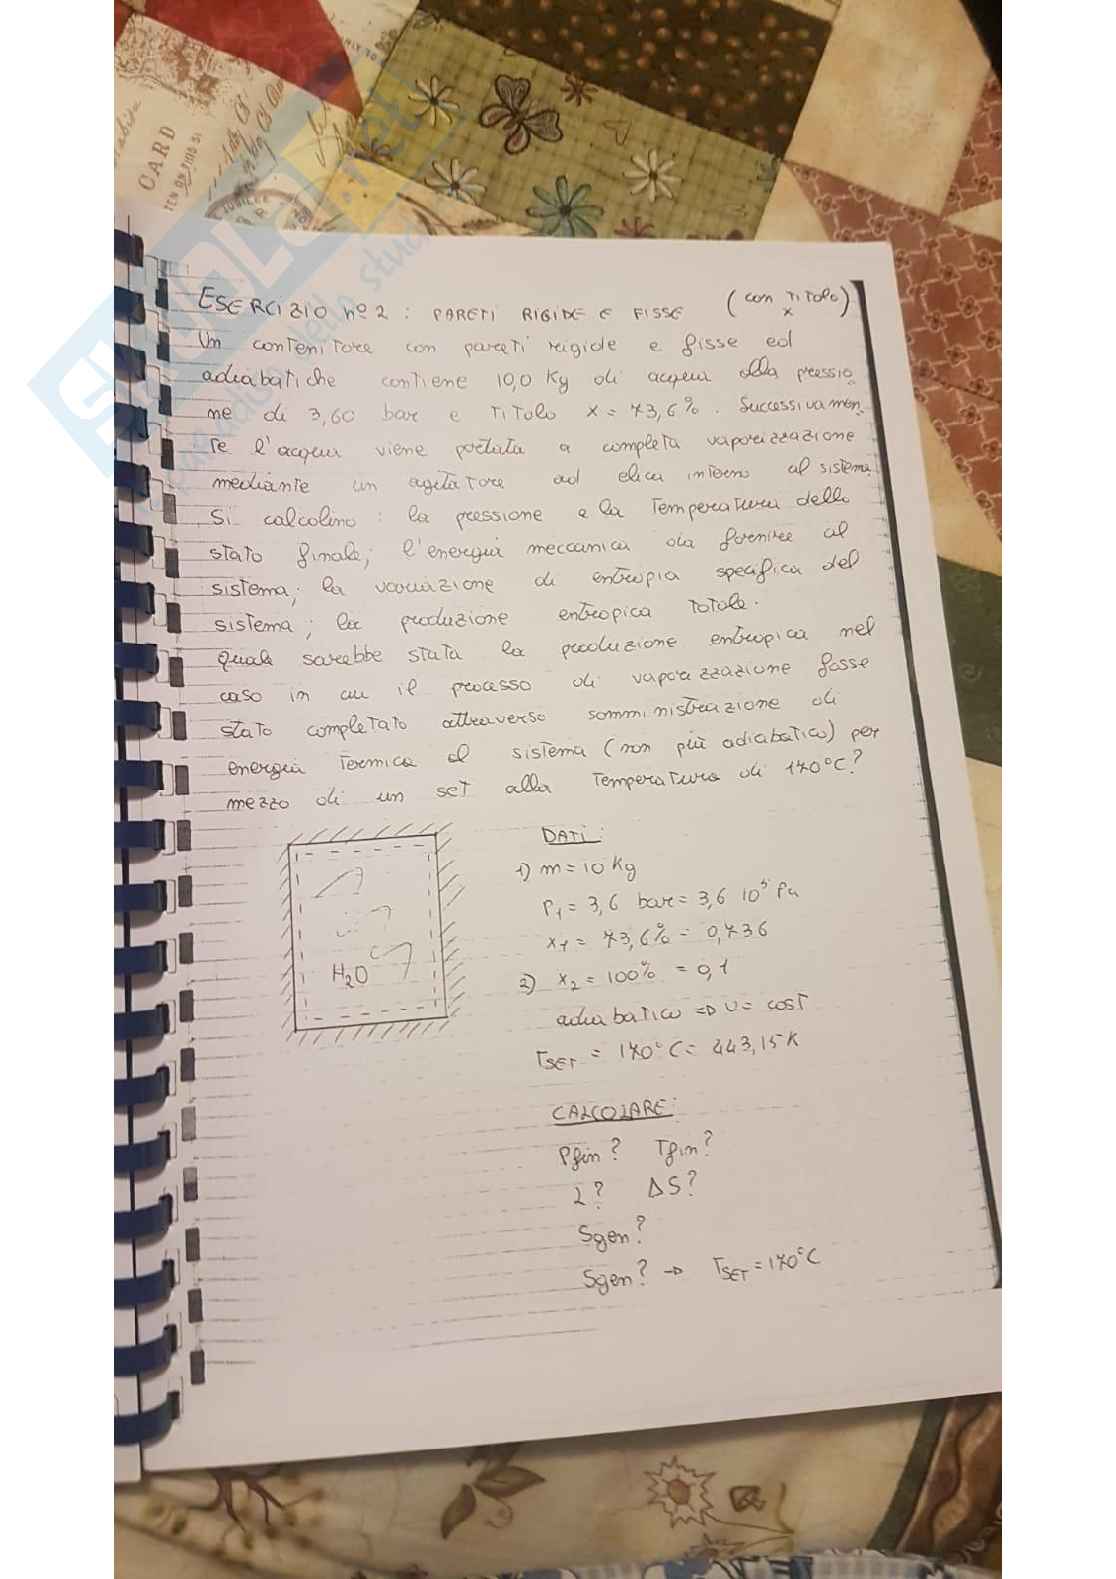 CARD
JUBILEE
ESERCIZIO nº 2 : PARETI RIGIDE E FISSE (con TITOLO)
x
Un contenitore con pareti rigide e fisse ed
adiabatiche contiene 10,0 Kg di acqua alla pressio
ne di 3,60 bar e TITOLO x = 73,6%. Successivamen
te l'acqua viene portata a completa vaporizzazione
mediante un agitatore ad elica interno al sistema
Si calcolino : la pressione e la Temperatura dello
stato finale; l'energia meccanica da fornire al
sistema; la variazione di entropia specifica del
sistema; la produzione entropica totale.
Quale sarebbe stata la produzione entropica nel
caso in cui il processo di vaporizzazione fosse
stato completato attraverso somministrazione di
energia Termica al sistema (non più adiabatico) per
mezzo di un SET alla Temperatura di 170°C?
DATI:
1) m = 10 Kg
P1 = 3,6 bar = 3,6 10⁵ Pa
x1 = 73,6% = 0,736
2) x2 = 100% = 0,1
adiabatico => U = cost
TSET = 170°C = 443,15K
H2O
CALCOLARE:
Pfin? Tfin?
L? ΔS?
Sgen?
Sgen? → TSET = 170°C